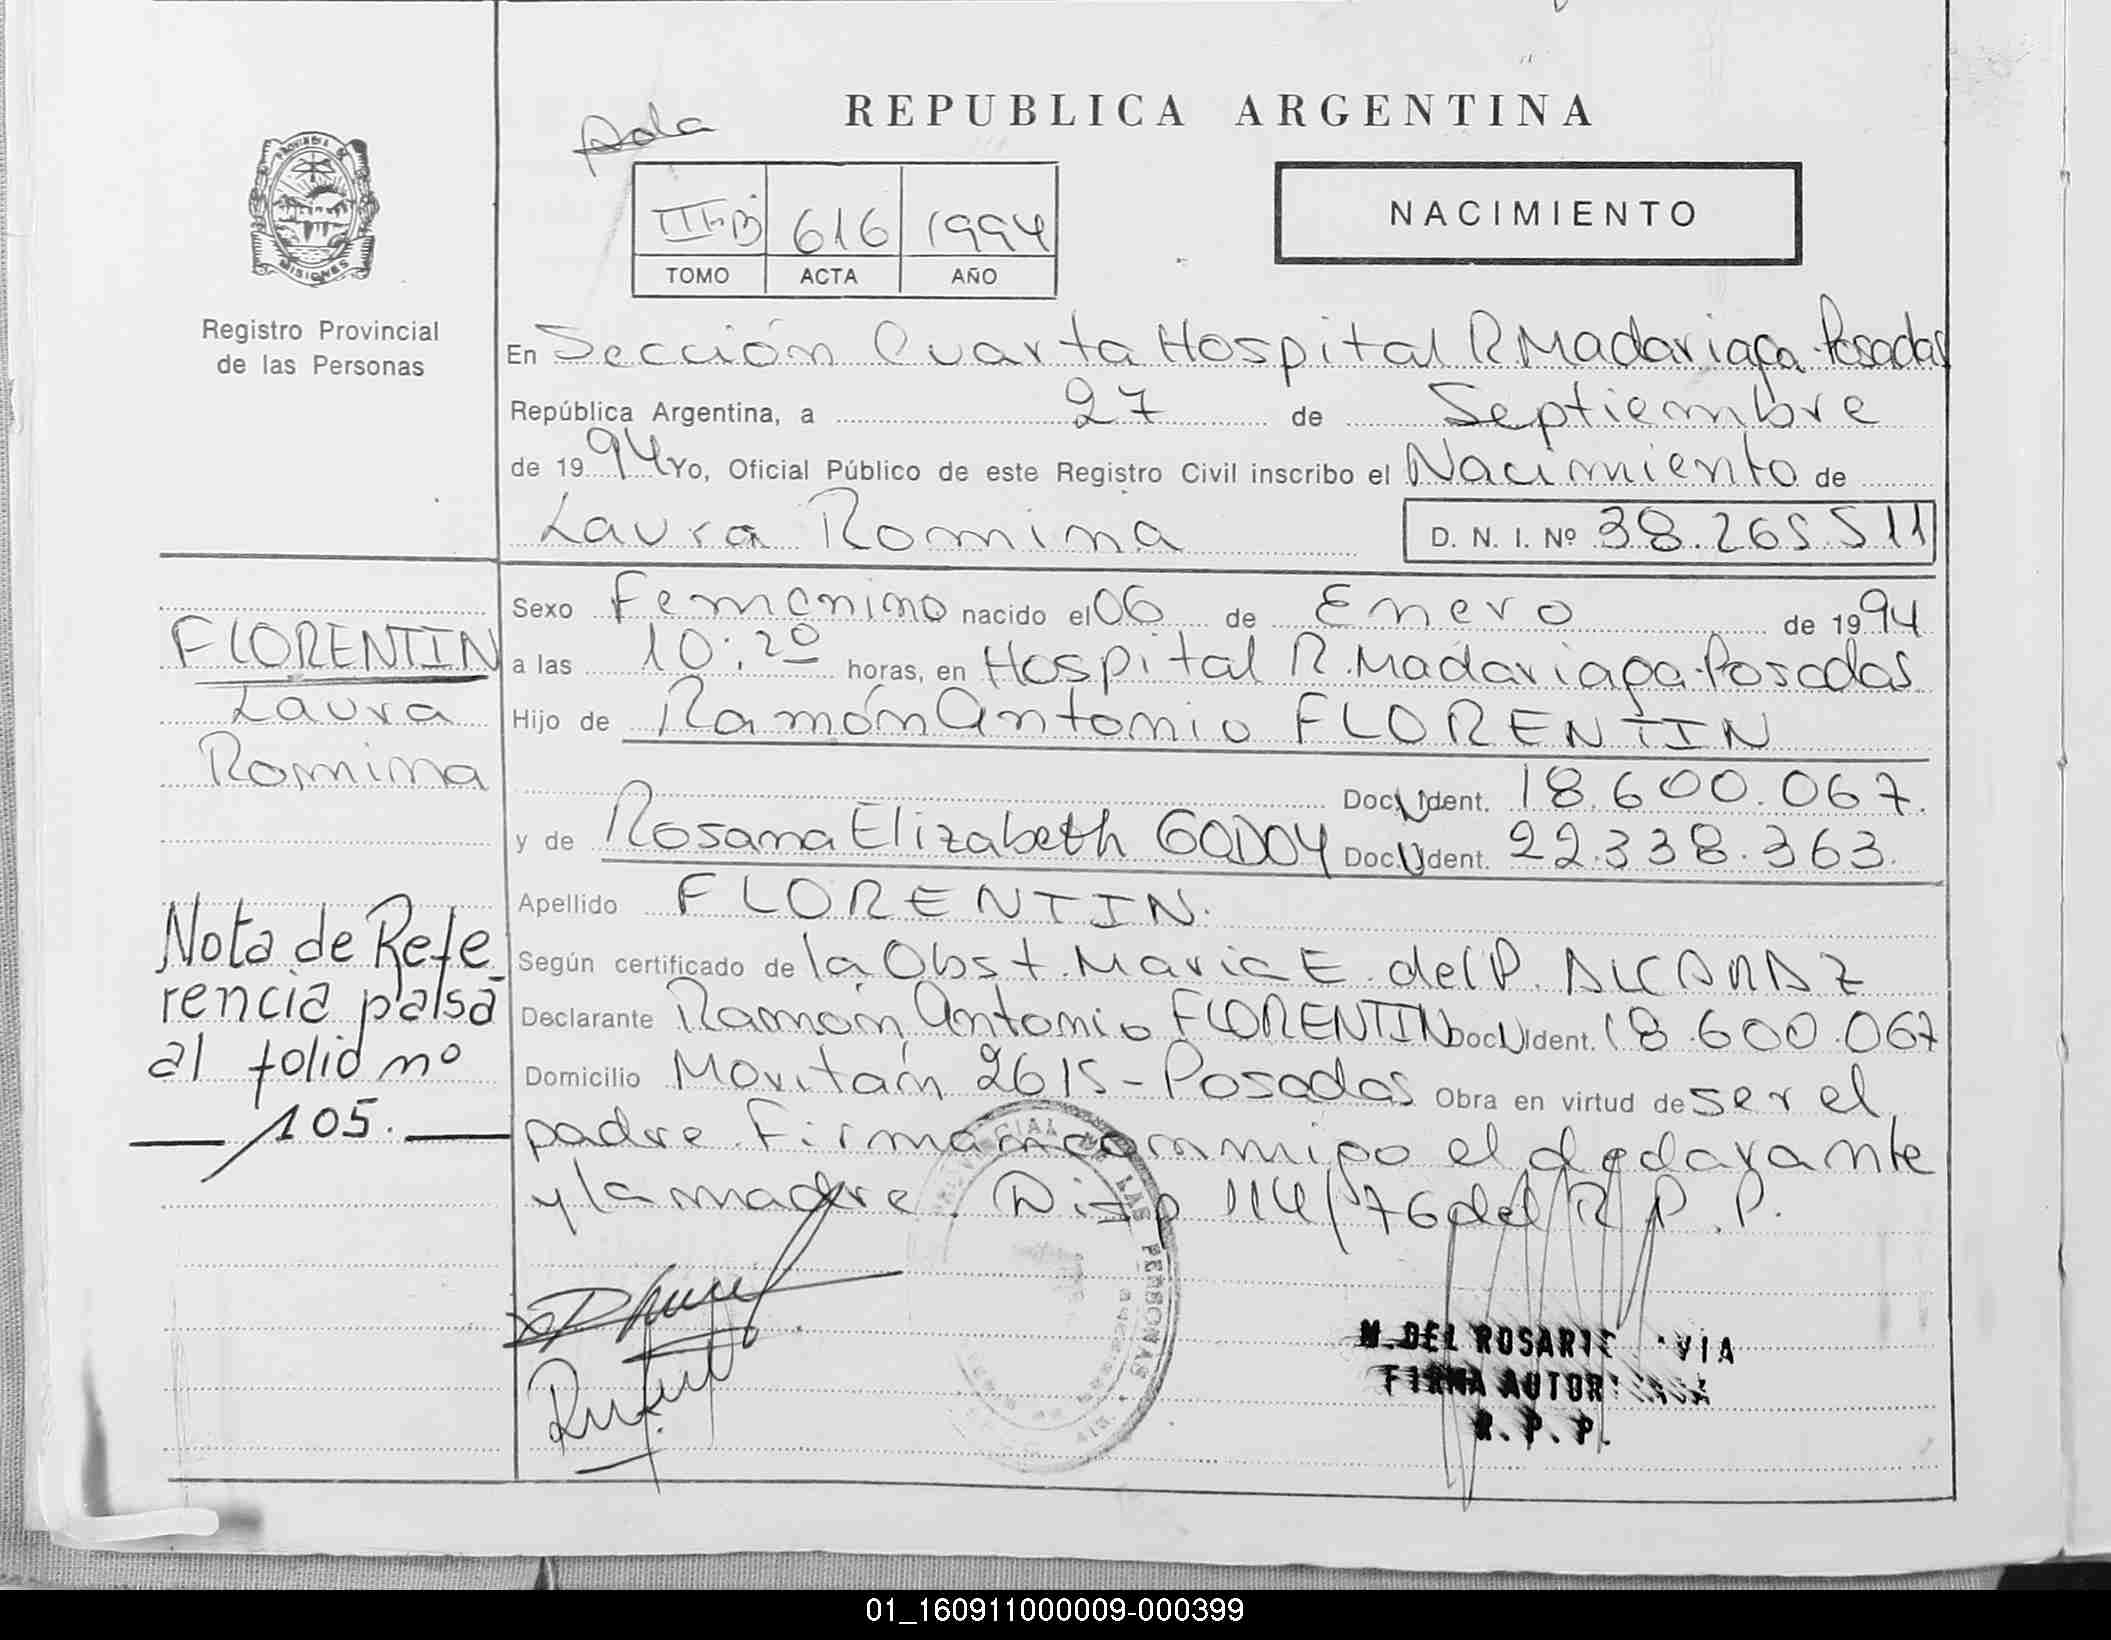 REPUBLICA ARGENTINA
PROVINCIA DE
MISIONES
Registro Provincial
de las Personas
III-B 616 1994
TOMO ACTA AÑO
NACIMIENTO
En Sección Cuarta Hospital R. Madariaga-Posadas
República Argentina, a 27 de Septiembre
de 1994 Yo, Oficial Público de este Registro Civil inscribo el Nacimiento de
Laura Romina D. N. I. Nº 38.265.511
Sexo Femenino nacido el 06 de Enero de 1994
a las 10:20 horas, en Hospital R. Madariaga-Posadas
Hijo de Ramón Antonio FLORENTIN
Doc. U Ident. 18.600.067.
y de Rosana Elizabeth GODOY Doc. U Ident. 22.338.363.
Apellido FLORENTIN.
Según certificado de la Obst. Maria E. del P. ALCARAZ
Declarante Ramón Antonio FLORENTIN Doc U Ident. 18.600.067
Domicilio 2615-Posadas Obra en virtud de ser el
padre. Firman conmigo el declarante
y la madre. Disp 114/76 del R.P.P.
FLORENTIN
Laura
Romina
Nota de Refe
rencia pasa
al folio nº
105.
M. DEL ROSARI VIA
FIRMA AUTORIZADA
R. P. P.
01_160911000009-000399